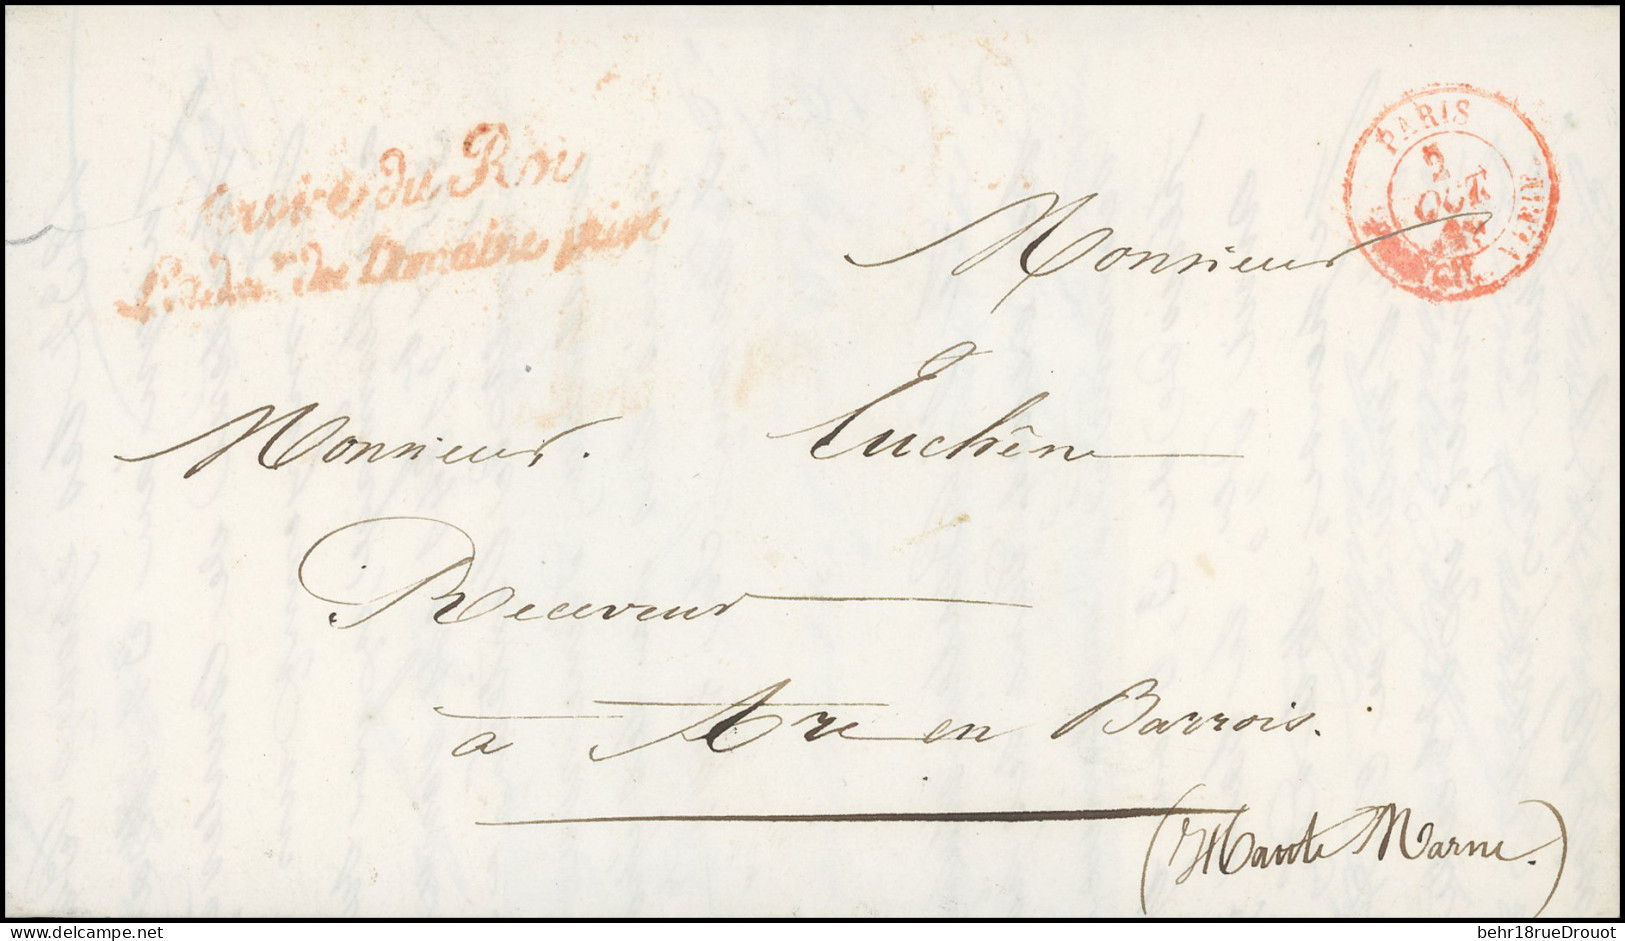 Service du Roi
L'adon du Domaine privé
PARIS
2
OCT.
Monsieur
Monsieur.
Luchêne
Receveur
à Arc en Barrois.
(Haute Marne.)
behr18rueDrouot